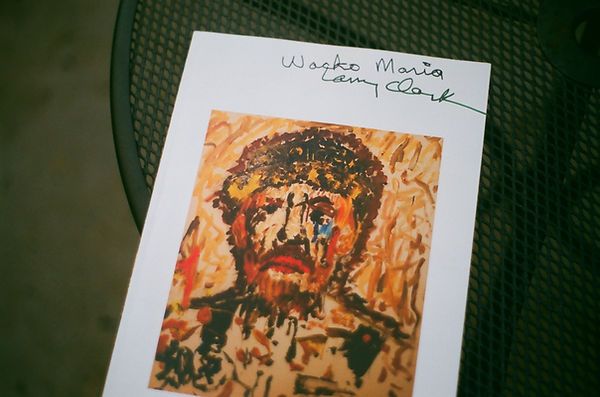 Wacko Maria
Larry Clark